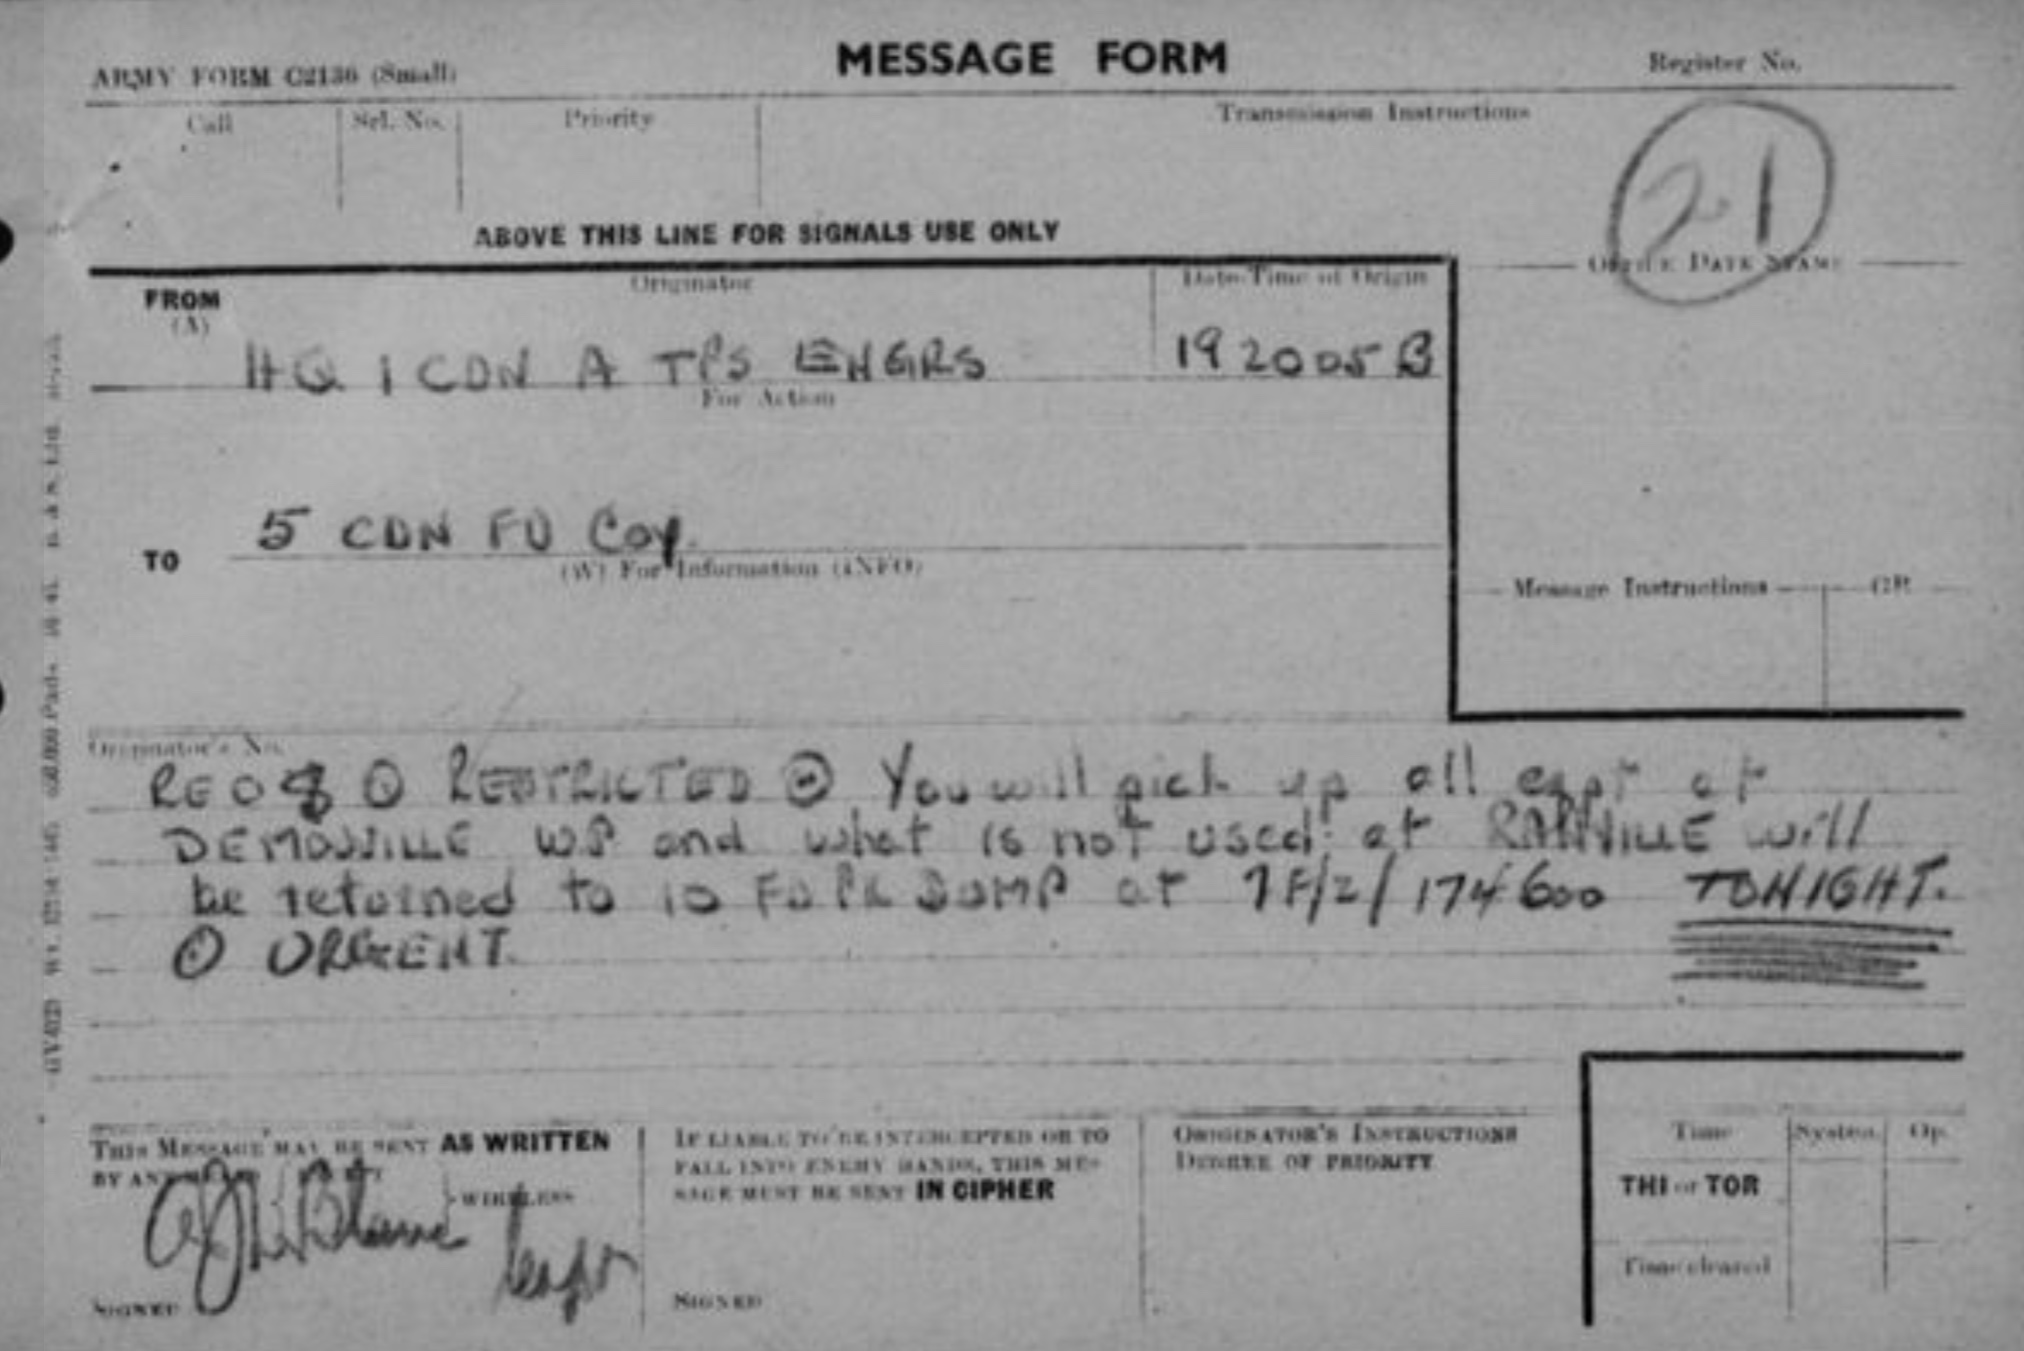 MESSAGE FORM
ARMY FORM C2136 (Small)
Register No.
Call Srl. No. Priority Transmission Instructions
21
ABOVE THIS LINE FOR SIGNALS USE ONLY
OFFICE DATE STAMP
FROM (A) Originator Date-Time of Origin
HQ 1 CDN A TPS ENGRS 192005B
For Action
TO 5 CDN FD Coy.
(W) For Information (INFO)
Message Instructions GR.
Originator's No.
RE08 ⊙ RESTRICTED ⊙ You will pick up all eqpt at
DEMOUVILLE WP and what is not used at RANVILLE will
be returned to 10 FD PK DUMP at 7F/2/174600 TONIGHT.
⊙ URGENT.
THIS MESSAGE MAY BE SENT AS WRITTEN
BY ANY
WIRELESS
SIGNED
IF LIABLE TO BE INTERCEPTED OR TO
FALL INTO ENEMY HANDS, THIS MES-
SAGE MUST BE SENT IN CIPHER
SIGNED
ORIGINATOR'S INSTRUCTIONS
DEGREE OF PRIORITY
Time System Op.
THI or TOR
Time cleared